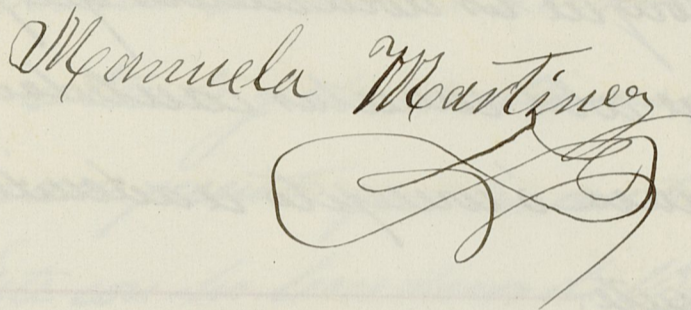 Manuela Martinez